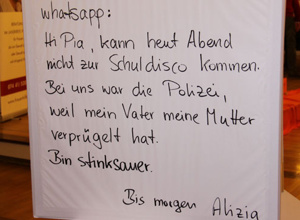 whatsapp:
Hi Pia, kann heut Abend
nicht zur Schuldisco kommen.
Bei uns war die Polizei,
weil mein Vater meine Mutter
verprügelt hat.
Bin stinksauer.
Bis morgen Alizia